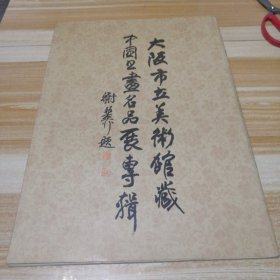 大阪市立美術館藏
中國書畫名品展專輯
谢稚柳題